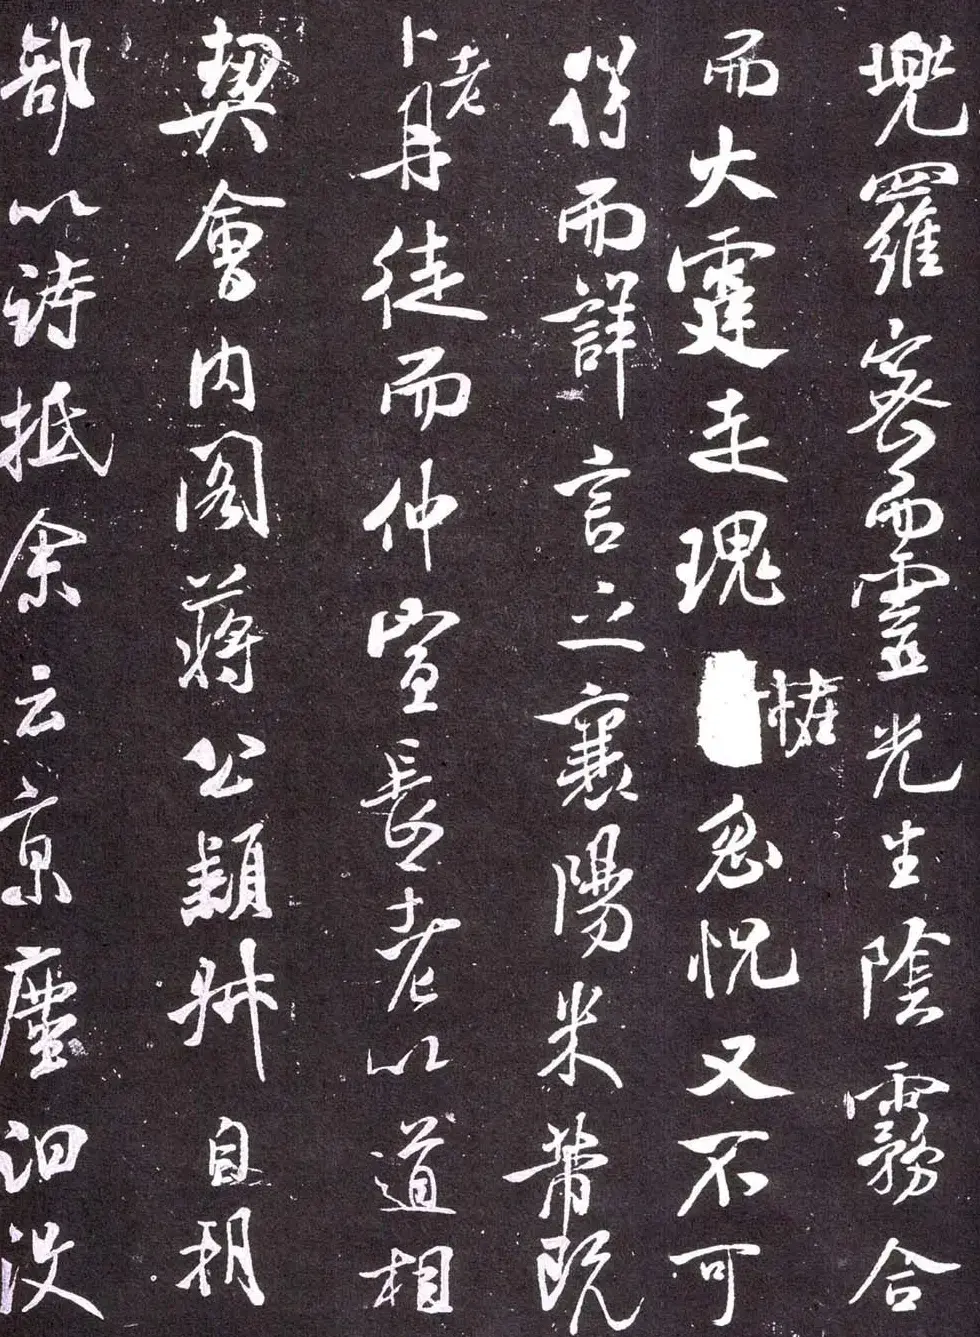 兜羅密而靈光生陰霧合
而大霆走瑰忽怳又不可
得而詳言之襄陽米芾既
卜老丹徒而仲宣長老以道相
契會内閣蔣公穎叔自朔
部以詩抵余云京塵汩没